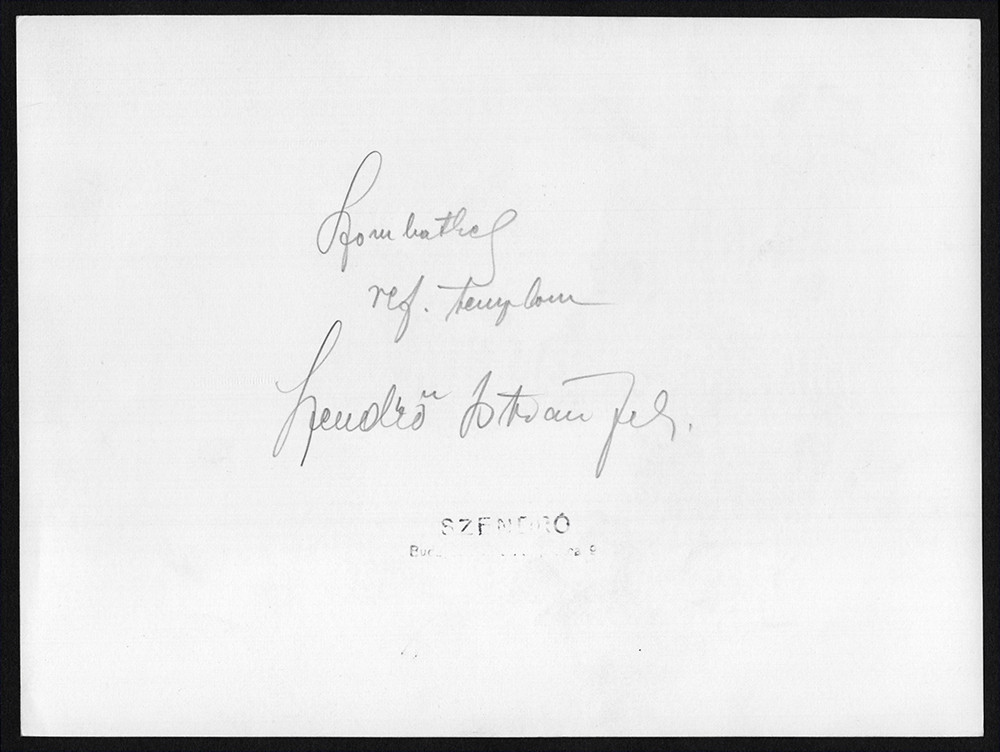 Szombathely
ref. templom
Szendrő István fel.
SZENDRŐ